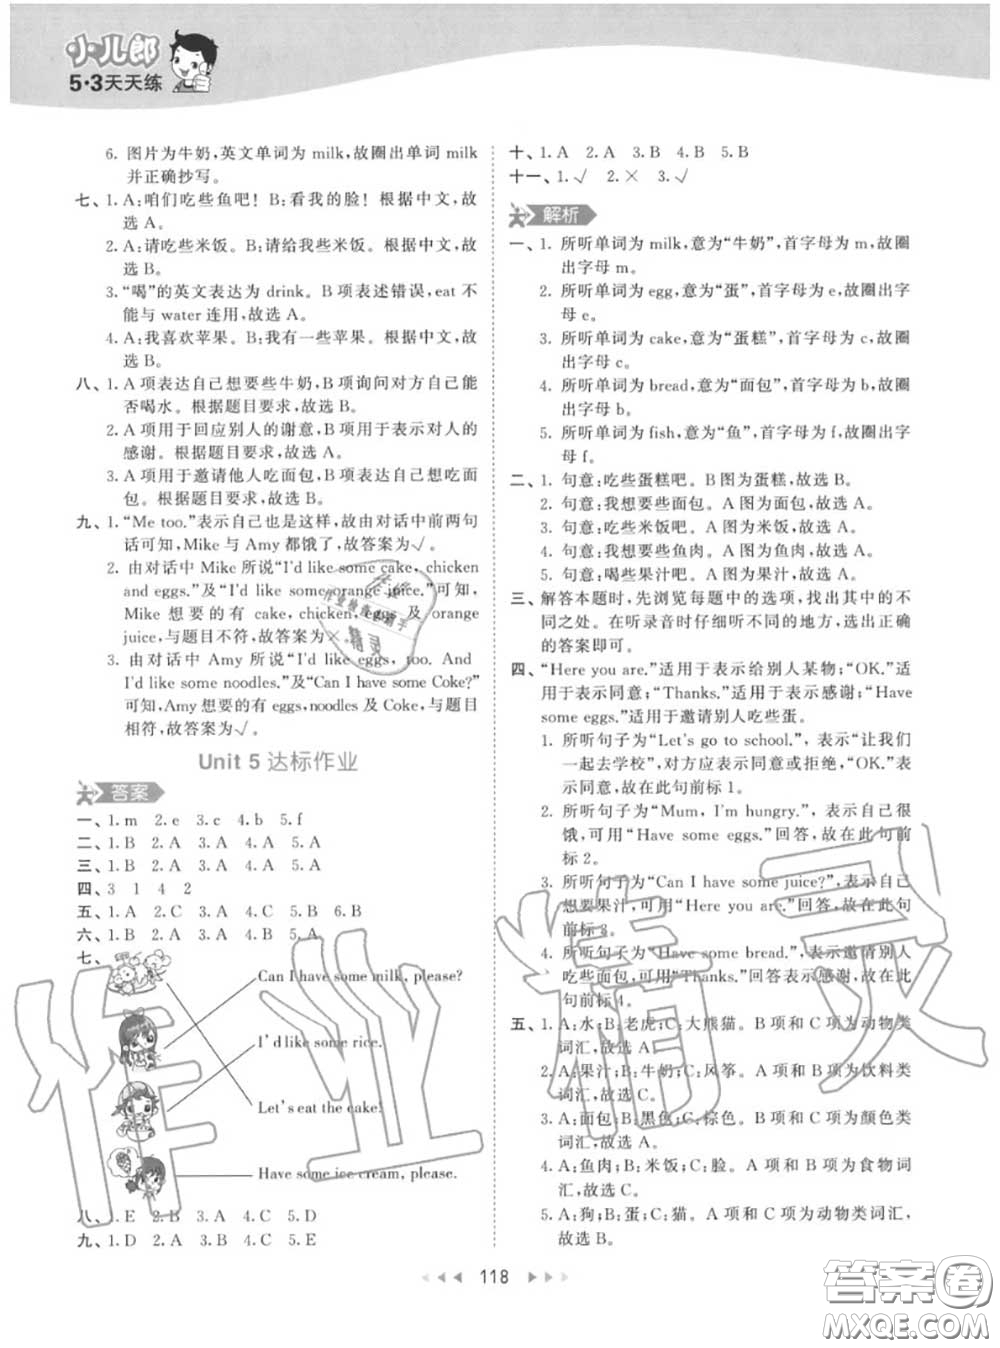 小儿郎
5·3天天练
6. 图片为牛奶,英文单词为 milk,故圈出单词 milk
并正确抄写。
七、1. A:咱们吃些鱼吧！B:看我的脸！根据中文,故
选 A。
2. A:请吃些米饭。B:请给我些米饭。根据中文,故
选 B。
3. “喝”的英文表达为 drink。B 项表述错误,eat 不
能与 water 连用,故选 A。
4. A:我喜欢苹果。B:我有一些苹果。根据中文,故
选 A。
八、1. A 项表达自己想要些牛奶,B 项询问对方自己能
否喝水。根据题目要求,故选 B。
2. A 项用于回应别人的谢意,B 项用于表示对人的
感谢。根据题目要求,故选 A。
3. A 项用于邀请他人吃面包,B 项表达自己想吃面
包。根据题目要求,故选 B。
九、1. “Me too.”表示自己也是这样,故由对话中前两句
话可知,Mike 与 Amy 都饿了,故答案为√。
2. 由对话中 Mike 所说“I'd like some cake, chicken
and eggs.”及“I'd like some orange juice.”可知,
Mike 想要的有 cake, chicken, eggs 及 orange
juice,与题目不符,故答案为×。
3. 由对话中 Amy 所说“I'd like eggs, too. And
I'd like some noodles.”及“Can I have some Coke?”
可知,Amy 想要的有 eggs,noodles 及 Coke,与题目
相符,故答案为√。
Unit 5 达标作业
答案
一、1. m 2. e 3. c 4. b 5. f
二、1. B 2. A 3. A 4. A 5. A
三、1. B 2. A 3. A 4. A 5. A
四、3 1 4 2
五、1. A 2. C 3. A 4. C 5. B 6. B
六、1. B 2. A 3. A 4. B 5. A
七、
Can I have some milk, please?
I'd like some rice.
Let's eat the cake!
Have some ice cream, please.
八、1. E 2. B 3. A 4. C 5. D
九、1. D 2. A 3. C 4. B 5. E
十、1. A 2. A 3. B 4. B 5. B
十一、1. √ 2. × 3. √
解析
一、1. 所听单词为 milk,意为“牛奶”,首字母为 m,故圈
出字母 m。
2. 所听单词为 egg,意为“蛋”,首字母为 e,故圈出字
母 e。
3. 所听单词为 cake,意为“蛋糕”,首字母为 c,故圈
出字母 c。
4. 所听单词为 bread,意为“面包”,首字母为 b,故圈
出字母 b。
5. 所听单词为 fish,意为“鱼”,首字母为 f,故圈出字
母 f。
二、1. 句意:吃些蛋糕吧。B 图为蛋糕,故选 B。
2. 句意:我想要些面包。A 图为面包,故选 A。
3. 句意:吃些米饭吧。A 图为米饭,故选 A。
4. 句意:我想要些鱼肉。A 图为鱼肉,故选 A。
5. 句意:喝些果汁吧。A 图为果汁,故选 A。
三、解答本题时,先浏览每题中的选项,找出其中的不
同之处。在听录音时仔细听不同的地方,选出正确
的答案即可。
四、“Here you are.”适用于表示给别人某物;“OK.”适
用于表示同意;“Thanks.”适用于表示感谢;“Have
some eggs.”适用于邀请别人吃些蛋。
1. 所听句子为“Let's go to school.”,表示“让我们
一起去学校”,对方应表示同意或拒绝,“OK.”表
示同意,故在此句前标 1。
2. 所听句子为“Mum, I'm hungry.”,表示自己很
饿,可用“Have some eggs.”回答,故在此句前
标 2。
3. 所听句子为“Can I have some juice?”,表示自己
想要果汁,可用“Here you are.”回答,故在此句
前标 3。
4. 所听句子为“Have some bread.”,表示邀请别人
吃些面包,可用“Thanks.”回答表示感谢,故在此
句前标 4。
五、1. A:水;B:老虎;C:大熊猫。B 项和 C 项为动物类
词汇,故选 A。
2. A:果汁;B:牛奶;C:风筝。A 项和 B 项为饮料类
词汇,故选 C。
3. A:面包;B:黑色;C:棕色。B 项和 C 项为颜色类
词汇,故选 A。
4. A:鱼肉;B:米饭;C:脸。A 项和 B 项为食物词
汇,故选 C。
5. A:狗;B:蛋;C:猫。A 项和 C 项为动物类词汇,
故选 B。
118
作业精灵
答案圈
MXQE.COM